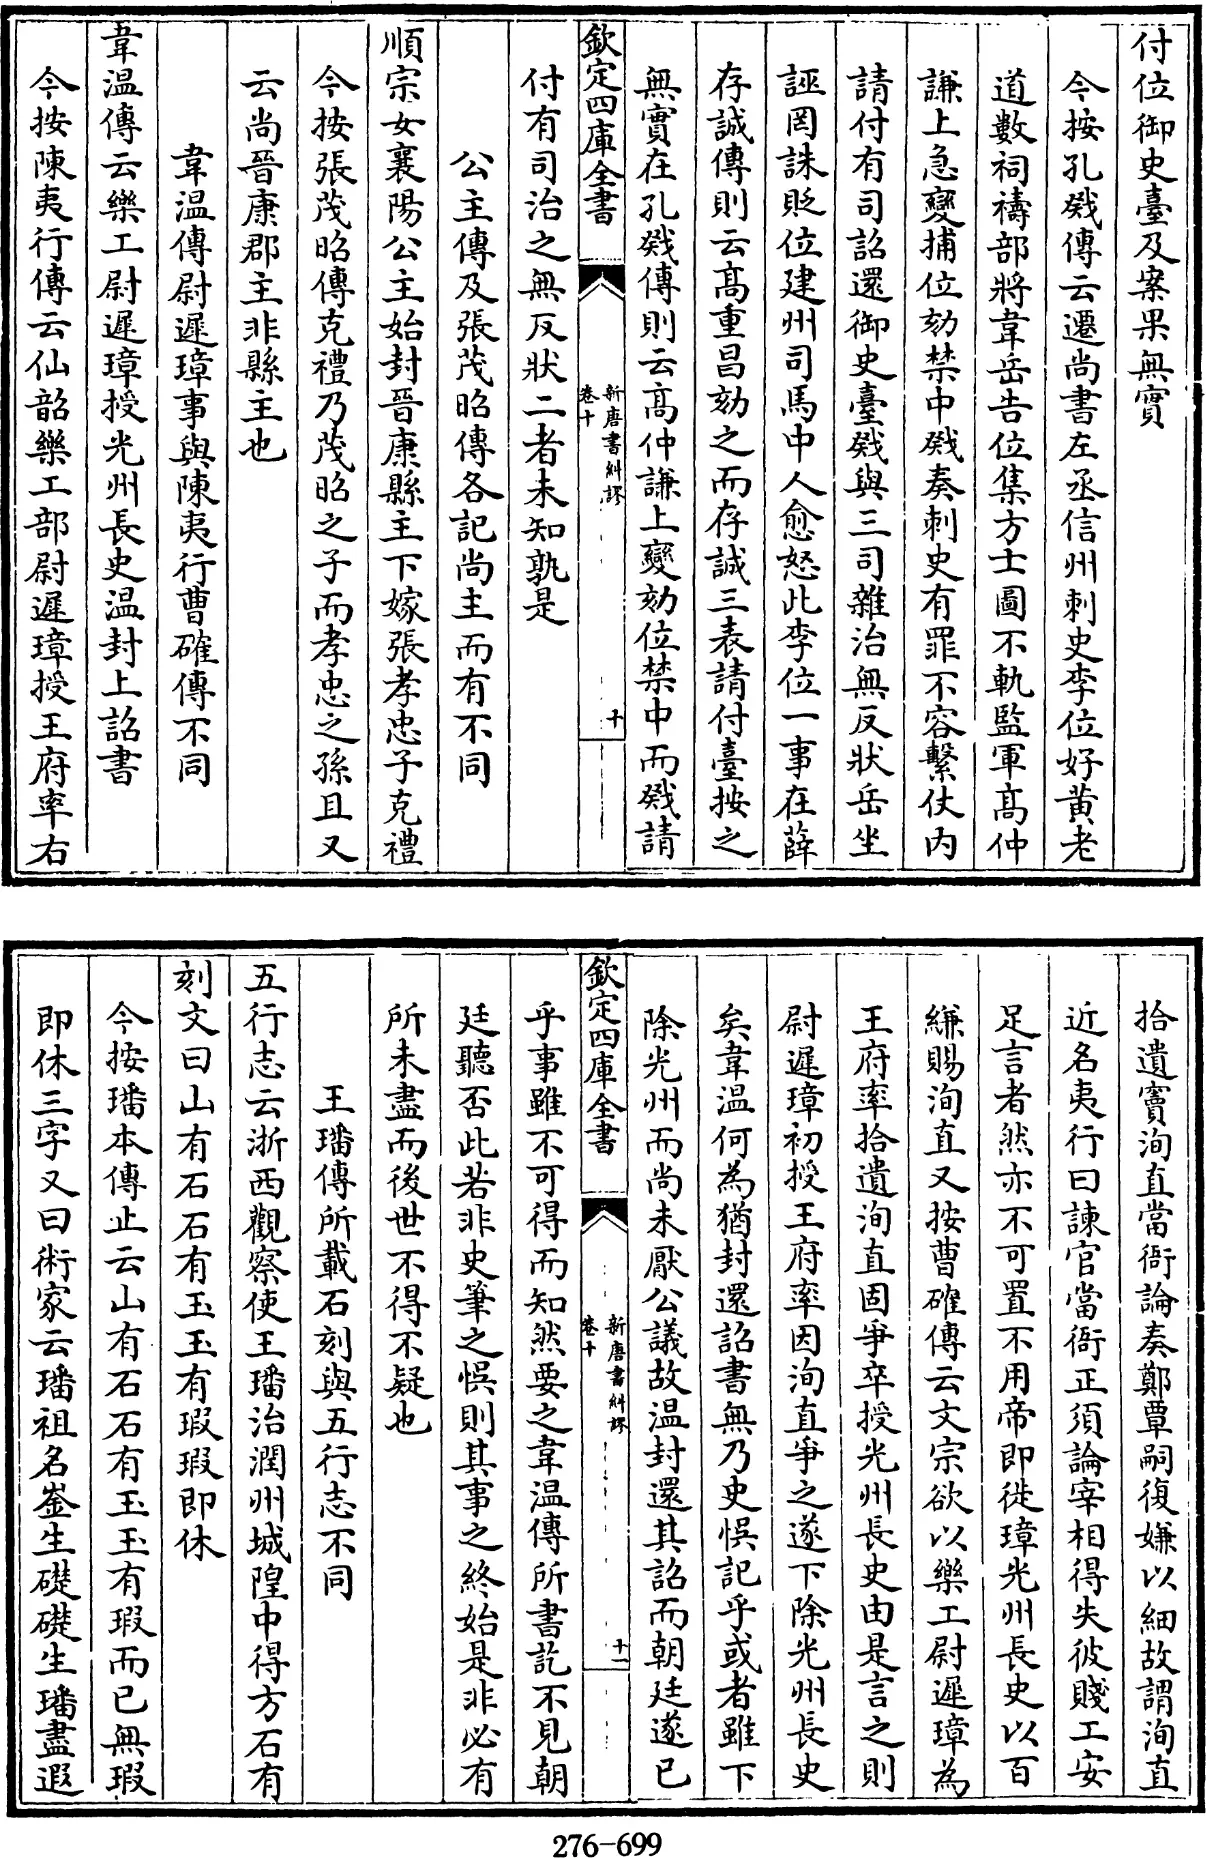 付位御史臺及案果無實
今按孔戣傳云遷尚書左丞信州刺史李位好黄老
道數祠禱部將韋岳告位集方士圖不軌監軍髙仲
謙上急變捕位劾禁中戣奏刺史有罪不容繫仗内
請付有司詔還御史臺戣與三司雜治無反狀岳坐
誣罔誅貶位建州司馬中人愈怒此李位一事在薛
存誠傳則云髙重昌劾之而存誠三表請付臺按之
無實在孔戣傳則云髙仲謙上變劾位禁中而戣請
欽定四庫全書
新唐書糾謬
卷十
十
付有司治之無反狀二者未知孰是
公主傳及張茂昭傳各記尚主而有不同
順宗女襄陽公主始封晉康縣主下嫁張孝忠子克禮
今按張茂昭傳克禮乃茂昭之子而孝忠之孫且又
云尚晉康郡主非縣主也
韋温傳尉遲璋事與陳夷行曹確傳不同
韋温傳云樂工尉遲璋授光州長史温封上詔書
今按陳夷行傳云仙韶樂工部尉遲璋授王府率右
拾遺竇洵直當衙論奏鄭覃嗣復嫌以細故謂洵直
近名夷行曰諫官當衙正須論宰相得失彼賤工安
足言者然亦不可置不用帝即徙璋光州長史以百
縑賜洵直又按曹確傳云文宗欲以樂工尉遲璋為
王府率拾遺洵直固爭卒授光州長史由是言之則
尉遲璋初授王府率因洵直爭之遂下除光州長史
矣韋温何為猶封還詔書無乃史悞記乎或者雖下
除光州而尚未厭公議故温封還其詔而朝廷遂已
欽定四庫全書
新唐書糾謬
卷十
十一
乎事雖不可得而知然要之韋温傳所書訖不見朝
廷聽否此若非史筆之悞則其事之終始是非必有
所未盡而後世不得不疑也
王璠傳所載石刻與五行志不同
五行志云浙西觀察使王璠治潤州城隍中得方石有
刻文曰山有石石有玉玉有瑕瑕即休
今按璠本傳止云山有石石有玉玉有瑕而已無瑕
即休三字又曰術家云璠祖名崟生礎礎生璠盡遐
276-699